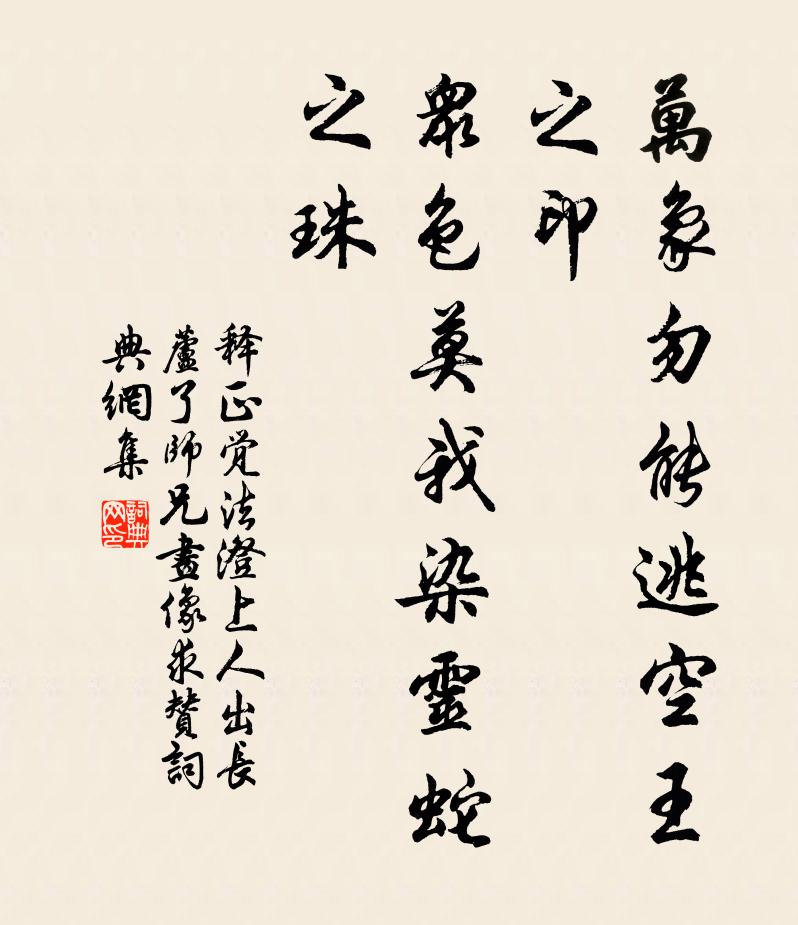 萬象勿能逃空王
之印
眾色莫我染靈蛇
之珠
释正覚法澄上人出長
蘆了師兄畫像求贊詞
典網集
詞典網印